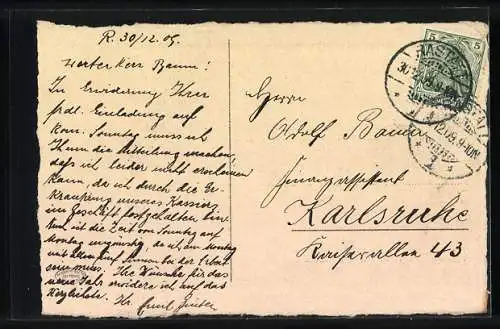 R. 30/12. 09.
werter Herr Bauer!
In Erwiderung Ihrer
frdl. Einladung auf
kom. Sonntag muss ich
Ihnen die Mitteilung machen,
dass ich leider nicht erscheinen
kann, da ich durch die Er-
krankung unseres Kassiers
im Geschäft festgehalten bin.
ist die Zeit vom Sonntag auf
Montag ungünstig, da ich am Montag
mit dem auf an der Arbeit
sein muss. Ihre Wünsche für das
neue Jahr erwidere ich auf das
Herzlichste. Ihr Emil
Herrn
Adolf Bauer
Finanzassistent
Karlsruhe
Kaiserallee 43
5 5
RASTATT